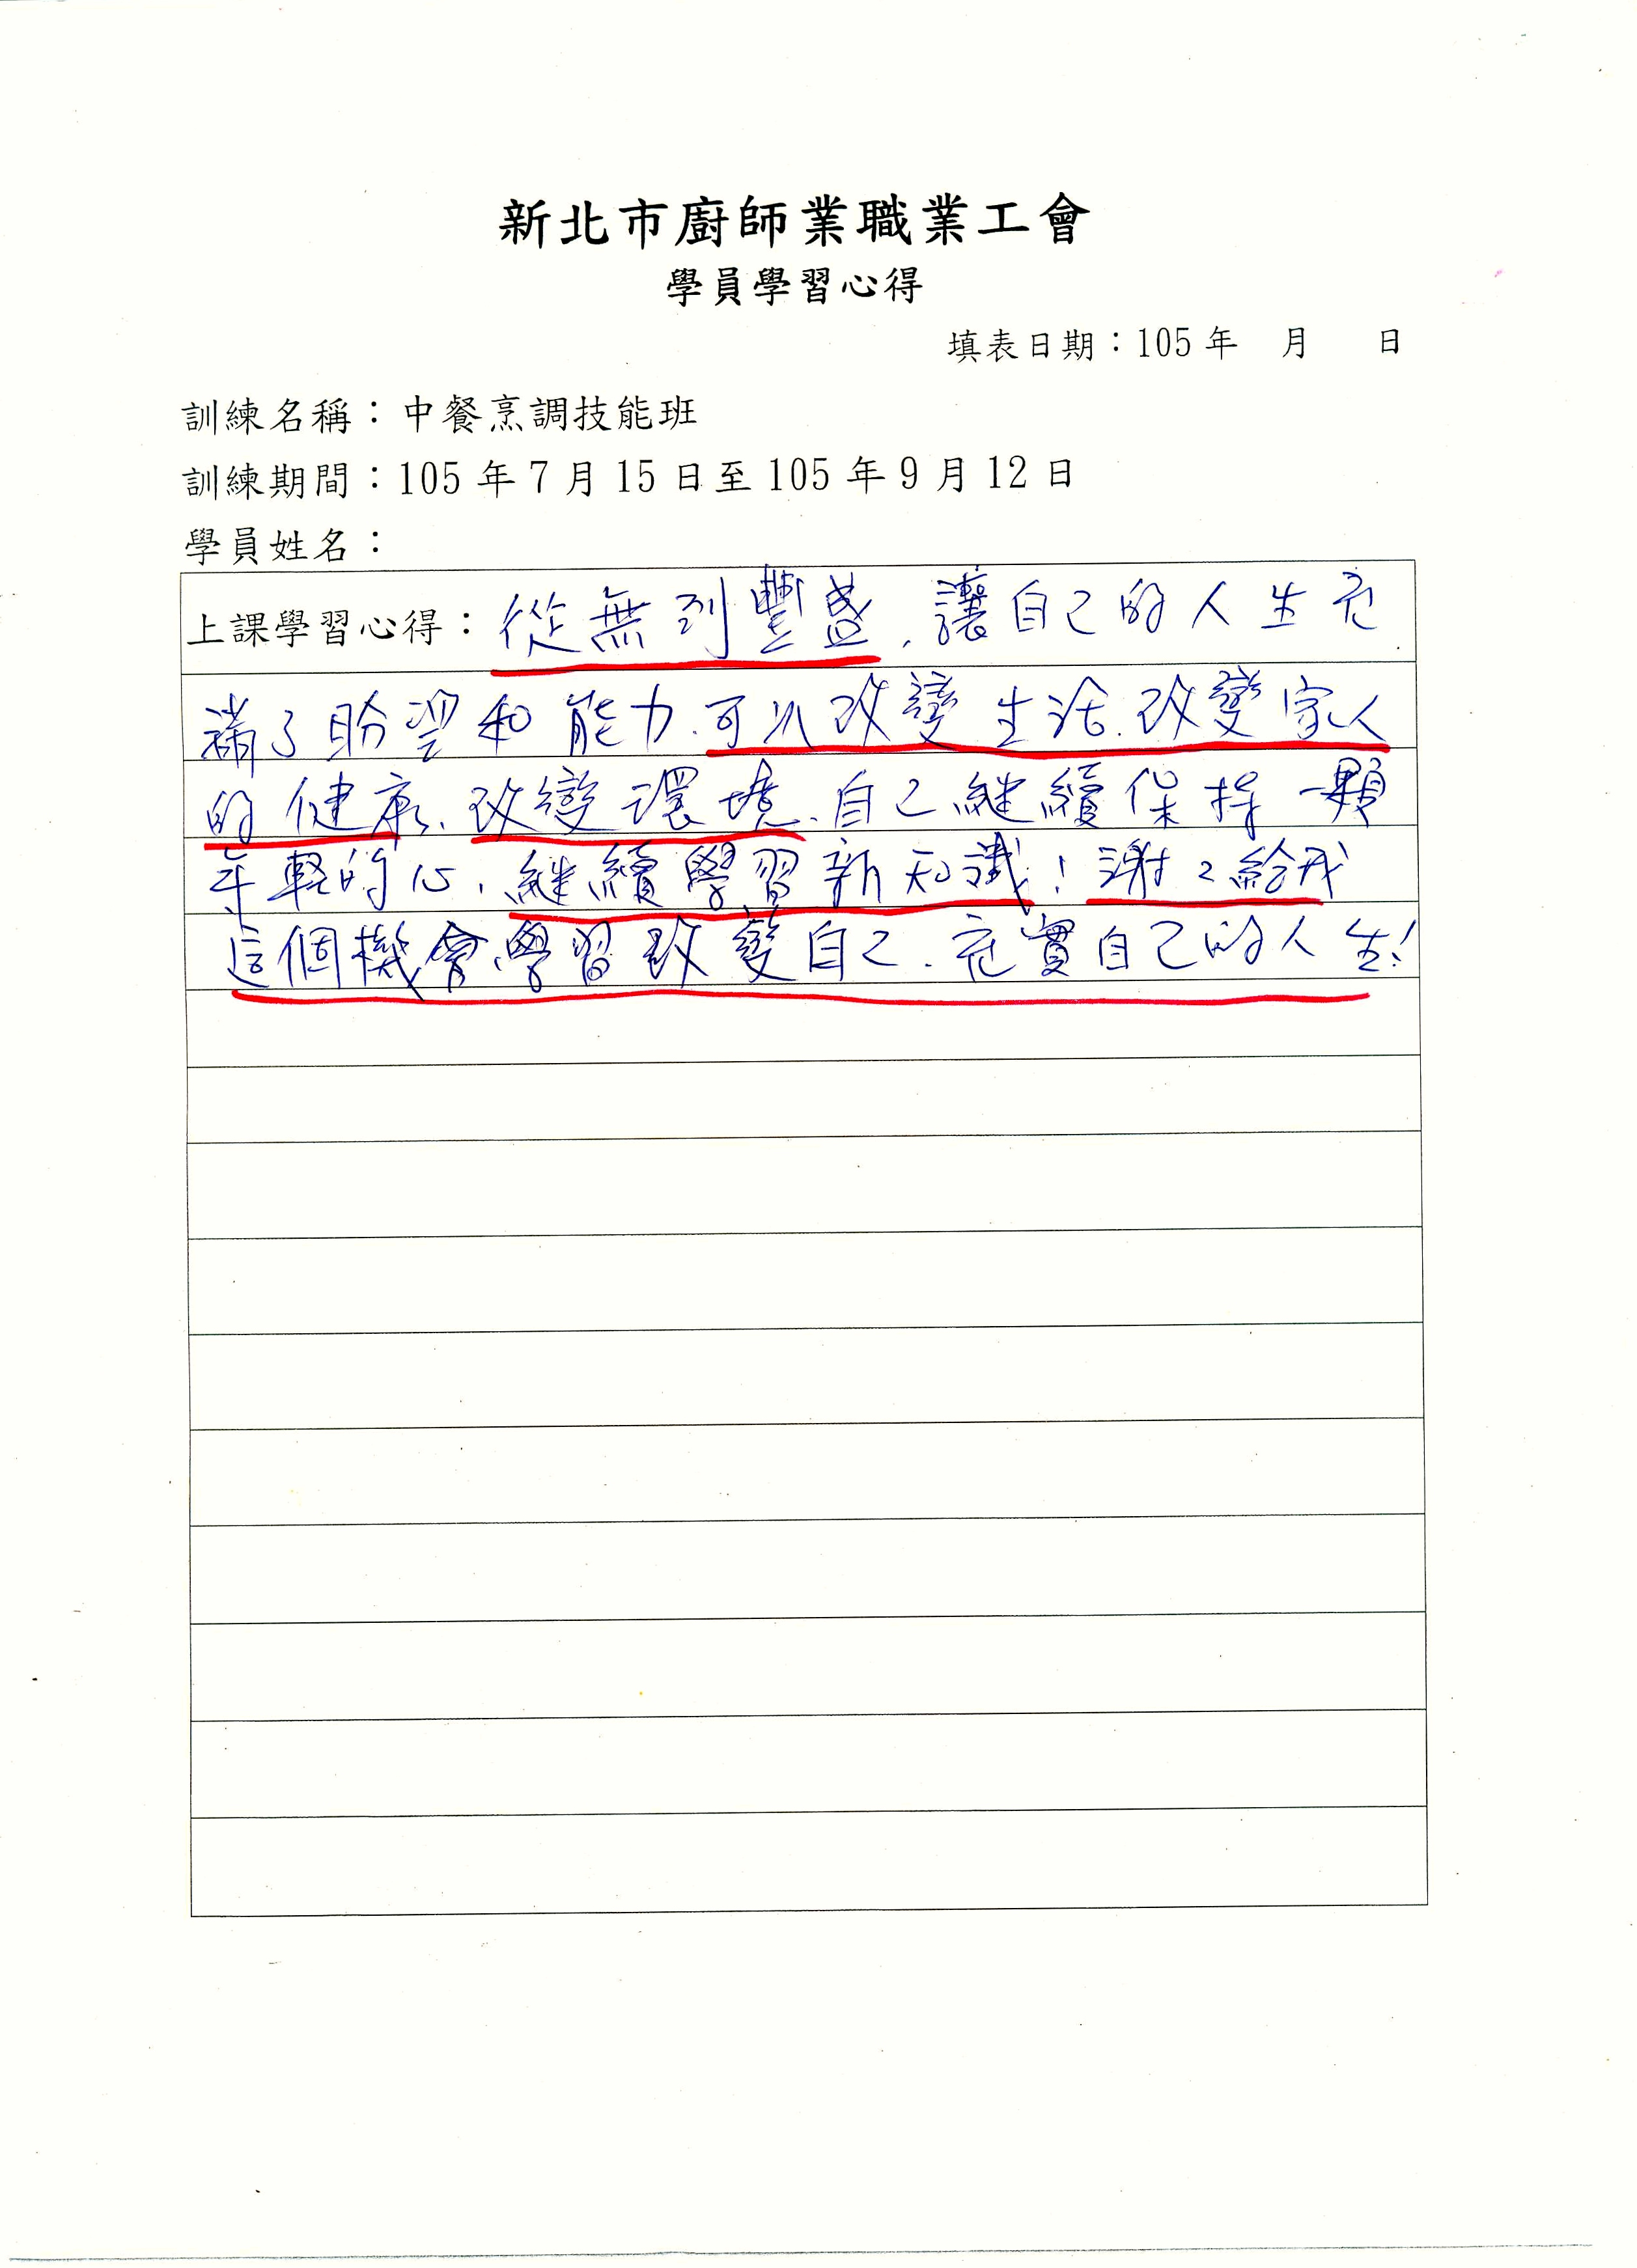 新北市廚師業職業工會
學員學習心得
填表日期：105 年 月 日
訓練名稱：中餐烹調技能班
訓練期間：105 年 7 月 15 日至 105 年 9 月 12 日
學員姓名：
上課學習心得：從無到豐盛，讓自己的人生充
滿了盼望和能力.可以改變生活.改變家人
的健康.改變環境.自己繼續保持一顆
年輕的心，繼續學習新知識！謝々給我
這個機會學習改變自己.充實自己的人生！